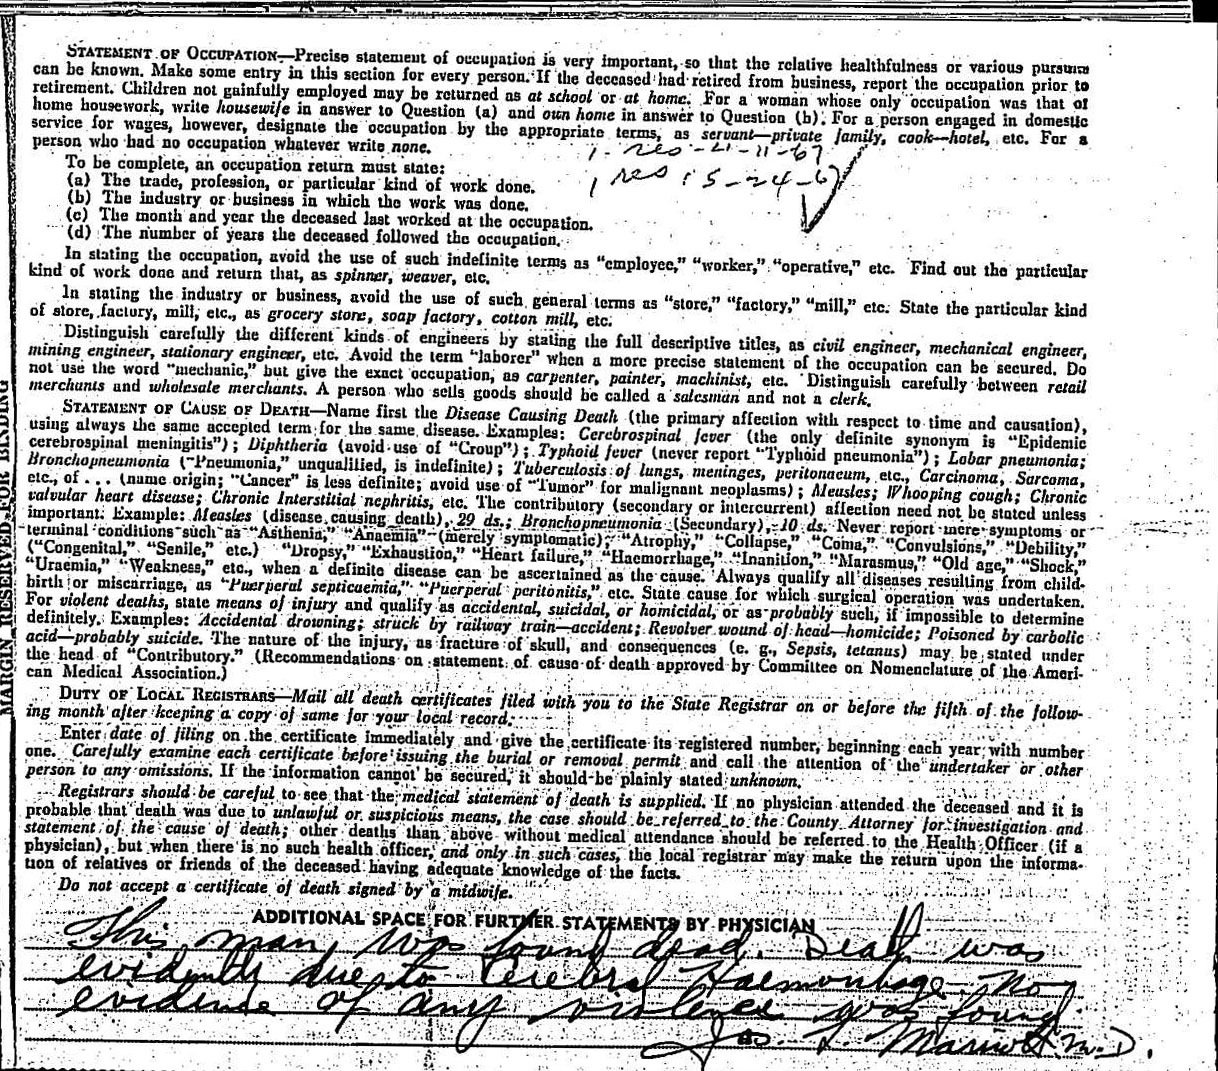 STATEMENT OF OCCUPATION—Precise statement of occupation is very important, so that the relative healthfulness or various pursuits
can be known. Make some entry in this section for every person. If the deceased had retired from business, report the occupation prior to
retirement. Children not gainfully employed may be returned as at school or at home. For a woman whose only occupation was that of
home housework, write housewife in answer to Question (a) and own home in answer to Question (b). For a person engaged in domestic
service for wages, however, designate the occupation by the appropriate terms, as servant—private family, cook—hotel, etc. For a
person who had no occupation whatever write none.
1 - res - 4-11-67
To be complete, an occupation return must state:
(a) The trade, profession, or particular kind of work done.
1 res : 5-24-67
(b) The industry or business in which the work was done.
(c) The month and year the deceased last worked at the occupation.
(d) The number of years the deceased followed the occupation.
In stating the occupation, avoid the use of such indefinite terms as “employee,” “worker,” “operative,” etc. Find out the particular
kind of work done and return that, as spinner, weaver, etc.
In stating the industry or business, avoid the use of such general terms as “store,” “factory,” “mill,” etc. State the particular kind
of store, factory, mill, etc., as grocery store, soap factory, cotton mill, etc.
Distinguish carefully the different kinds of engineers by stating the full descriptive titles, as civil engineer, mechanical engineer,
mining engineer, stationary engineer, etc. Avoid the term “laborer” when a more precise statement of the occupation can be secured. Do
not use the word “mechanic,” but give the exact occupation, as carpenter, painter, machinist, etc. Distinguish carefully between retail
merchants and wholesale merchants. A person who sells goods should be called a salesman and not a clerk.
STATEMENT OF CAUSE OF DEATH—Name first the Disease Causing Death (the primary affection with respect to time and causation),
using always the same accepted term for the same disease. Examples: Cerebrospinal fever (the only definite synonym is “Epidemic
cerebrospinal meningitis”); Diphtheria (avoid use of “Croup”); Typhoid fever (never report “Typhoid pneumonia”); Lobar pneumonia;
Bronchopneumonia (“Pneumonia,” unqualified, is indefinite); Tuberculosis of lungs, meninges, peritonaeum, etc., Carcinoma, Sarcoma,
etc., of . . . (name origin; “Cancer” is less definite; avoid use of “Tumor” for malignant neoplasms); Measles; Whooping cough; Chronic
valvular heart disease; Chronic Interstitial nephritis, etc. The contributory (secondary or intercurrent) affection need not be stated unless
important. Example: Measles (disease causing death), 29 ds.; Bronchopneumonia (Secondary), 10 ds. Never report mere symptoms or
terminal conditions such as “Asthenia,” “Anaemia” (merely symptomatic); “Atrophy,” “Collapse,” “Coma,” “Convulsions,” “Debility,”
(“Congenital,” “Senile,” etc.) “Dropsy,” “Exhaustion,” “Heart failure,” “Haemorrhage,” “Inanition,” “Marasmus,” “Old age,” “Shock,”
“Uraemia,” “Weakness,” etc., when a definite disease can be ascertained as the cause. Always qualify all diseases resulting from child-
birth or miscarriage, as “Puerperal septicaemia,” “Puerperal peritonitis,” etc. State cause for which surgical operation was undertaken.
For violent deaths, state means of injury and qualify as accidental, suicidal, or homicidal, or as probably such, if impossible to determine
definitely. Examples: Accidental drowning; struck by railway train—accident; Revolver wound of head—homicide; Poisoned by carbolic
acid—probably suicide. The nature of the injury, as fracture of skull, and consequences (e. g., Sepsis, tetanus) may be stated under
the head of “Contributory.” (Recommendations on statement of cause of death approved by Committee on Nomenclature of the Ameri-
can Medical Association.)
DUTY OF LOCAL REGISTRARS—Mail all death certificates filed with you to the State Registrar on or before the fifth of the follow-
ing month after keeping a copy of same for your local record.
Enter date of filing on the certificate immediately and give the certificate its registered number, beginning each year with number
one. Carefully examine each certificate before issuing the burial or removal permit and call the attention of the undertaker or other
person to any omissions. If the information cannot be secured, it should be plainly stated unknown.
Registrars should be careful to see that the medical statement of death is supplied. If no physician attended the deceased and it is
probable that death was due to unlawful or suspicious means, the case should be referred to the County Attorney for investigation and
statement of the cause of death; other deaths than above without medical attendance should be referred to the Health Officer (if a
physician), but when there is no such health officer, and only in such cases, the local registrar may make the return upon the informa-
tion of relatives or friends of the deceased having adequate knowledge of the facts.
Do not accept a certificate of death signed by a midwife.
ADDITIONAL SPACE FOR FURTHER STATEMENTS BY PHYSICIAN
This man was found dead. Death was
evidently due to Cerebral Haemorrhage. No
evidence of any violence was found
Jas. T. Marriott M.D.
MARGIN RESERVED FOR BINDING